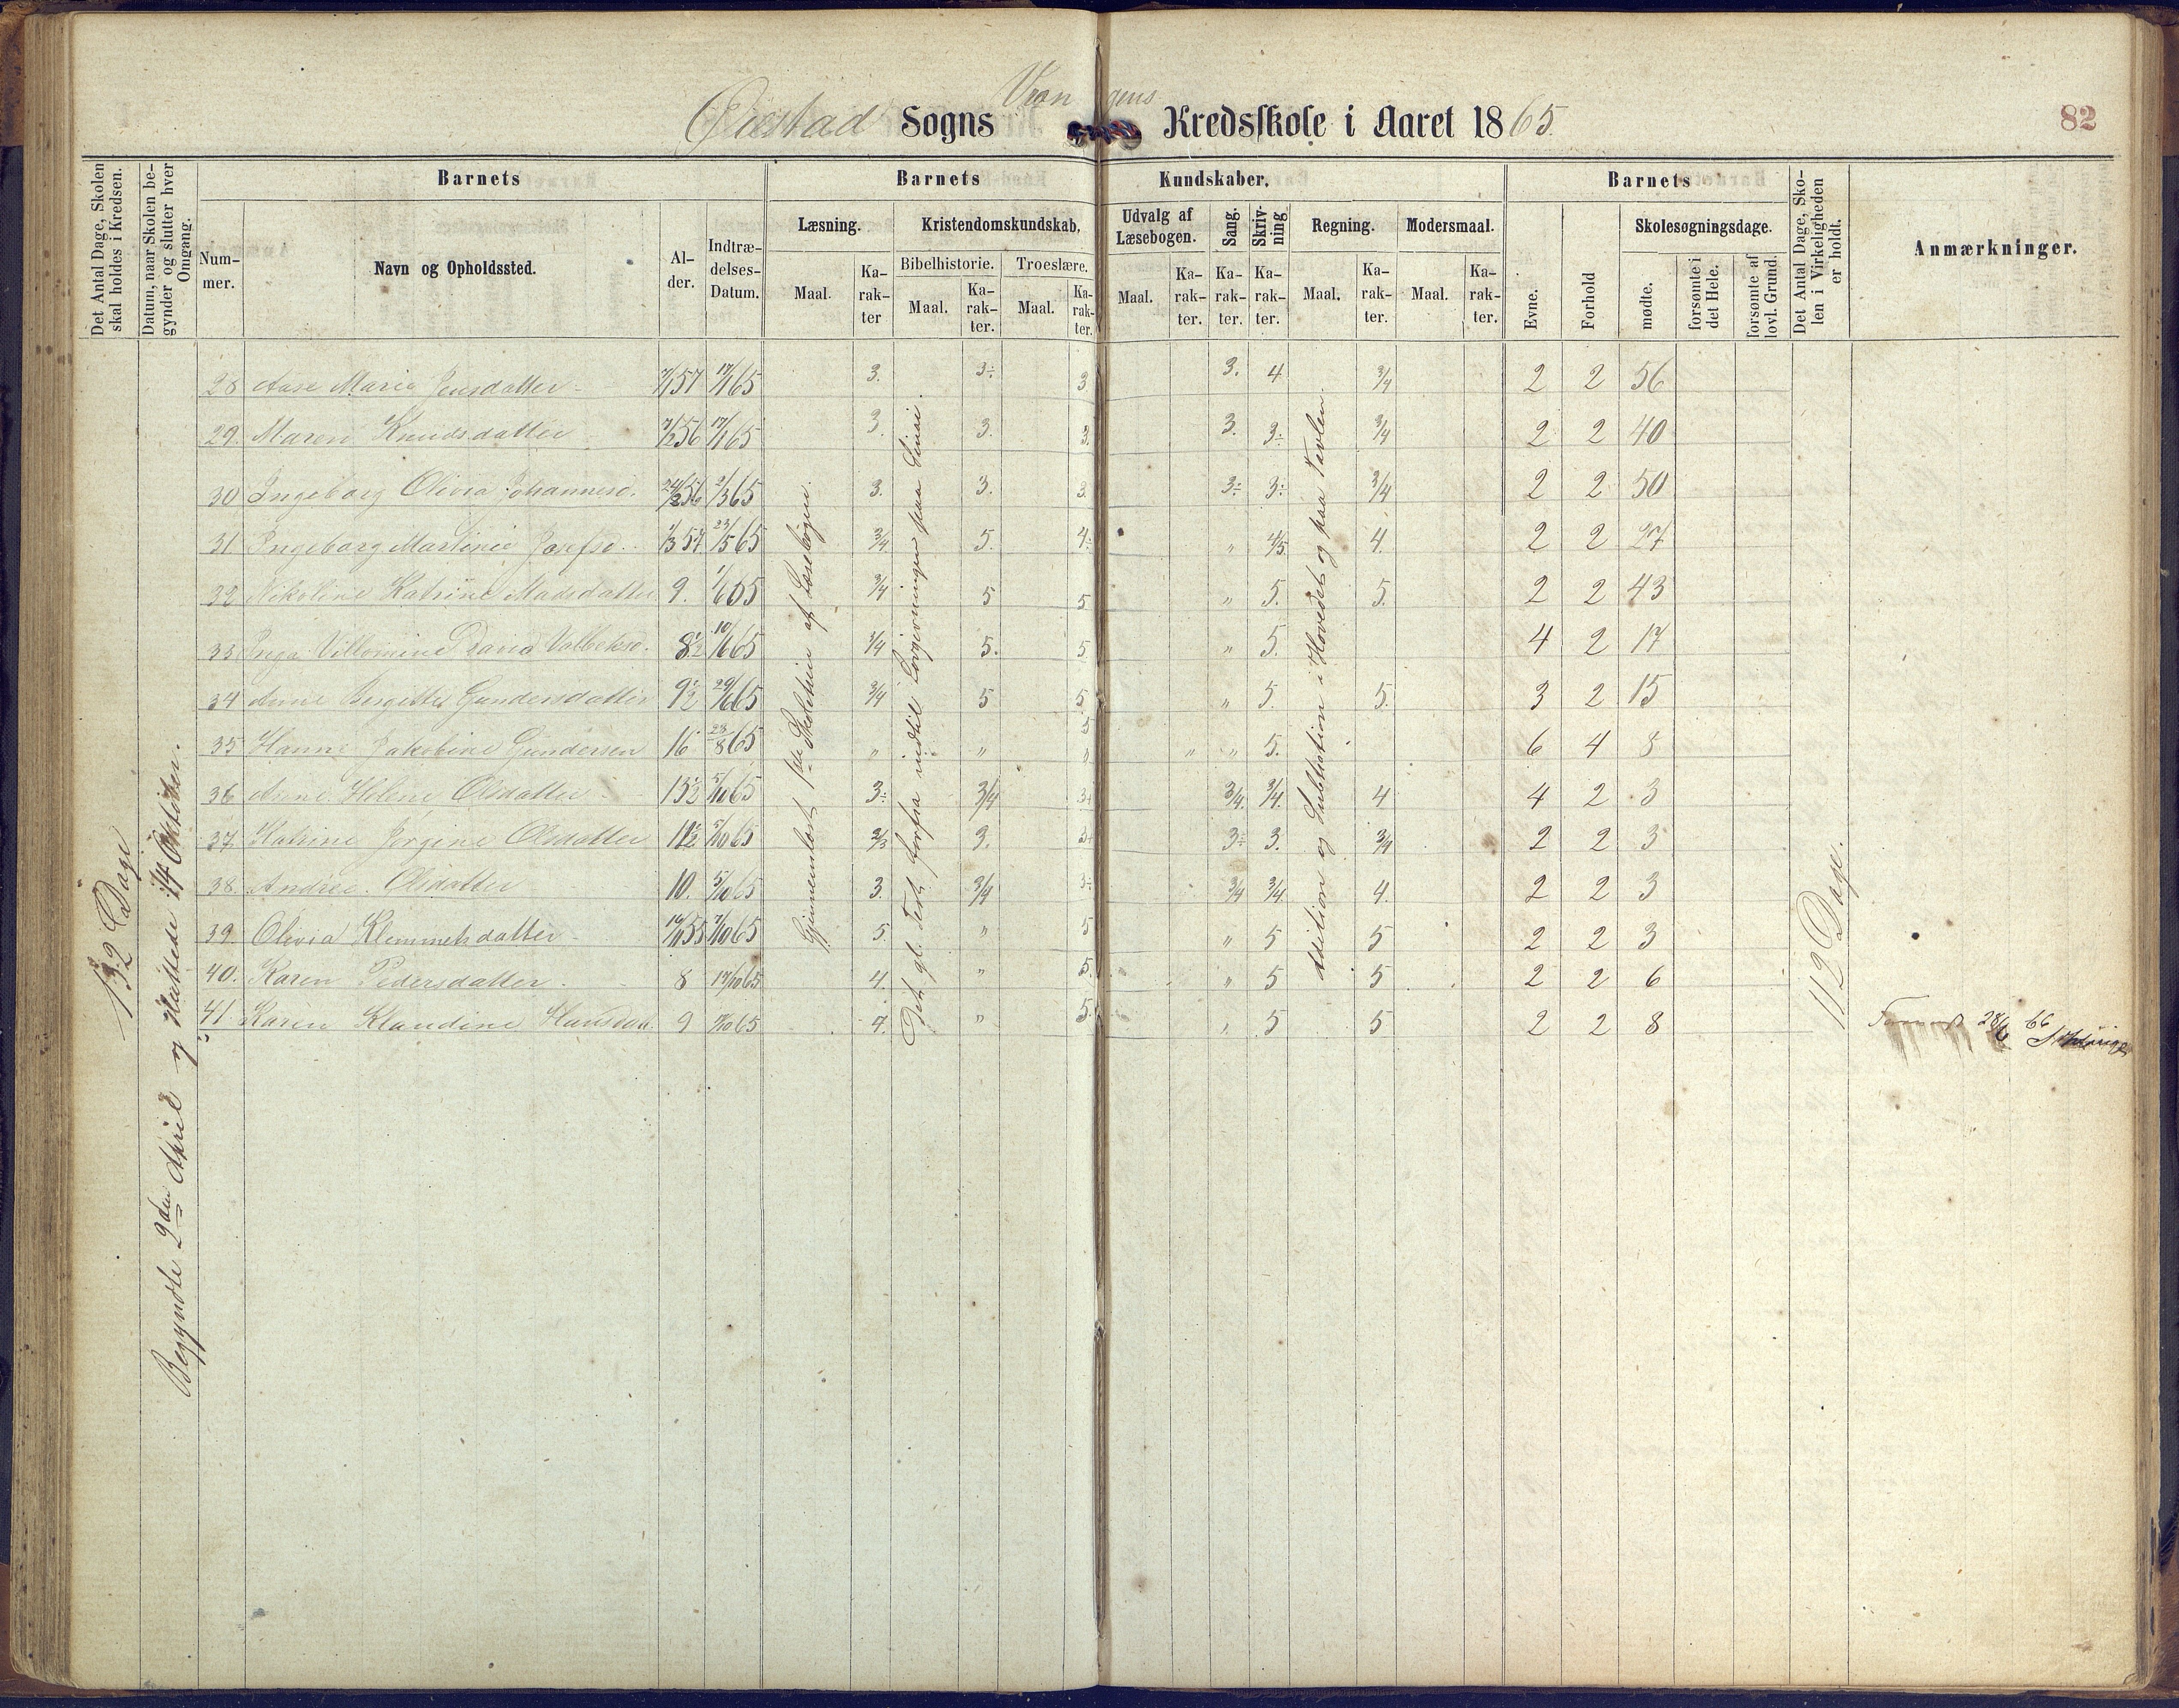 Vrangens
Øiestad Sogns Kredsskole i Aaret 1865.
82
Det Antal Dage, Skolen skal holdes i Kredsen.
Datum, naar Skolen begynder og slutter hver Omgang.
Barnets
Barnets Kundskaber.
Barnets
Det Antal Dage, Skolen i Virkeligheden er holdt.
Anmærkninger.
Nummer.
Navn og Opholdssted.
Alder.
Indtrædelses-Datum.
Læsning.
Kristendomskundskab.
Udvalg af Læsebogen.
Sang.
Skrivning.
Regning.
Modersmaal.
Evne.
Forhold
Skolesøgningsdage.
Bibelhistorie.
Troeslære.
Maal. Karakter
Maal. Karakter.
Maal. Karakter.
Maal. Karakter.
Karakter.
Karakter.
Maal. Karakter.
Maal. Karakter.
mødte.
forsømte i det Hele.
forsømte af lovl. Grund.
132 Dage
Begyndte 2den April og sluttede 14 Oktober.
Gjennemlæst 1ste Skoletrin af Læsebogen.
Det gl. Test. forfra indtil Lovgivningen paa Sinai.
Addition og Subtration i Hovedet og paa Tavlen
112 Dage.
28 Aase Maria Jensdatter 7/1 57 17/1 65 3. 3÷ 3 3. 4 3/4 2 2 56
29. Maren Knudsdatter 7/2 56 17/1 65 3. 3. 3. 3. 3÷ 3/4 2 2 40
30 Ingeborg Olivia Johannesd. 24/2 56 2/3 65 3. 3. 3. 3÷ 3÷ 3/4 2 2 50
31 Ingeborg Martinie Josefsd. 1/3 57 23/5 65 3/4 5. 4÷ „ 4/5 4. 2 2 27
32 Nikoline Katrine Madsdatter 9. 1/6 65 3/4 5 5 „ 5. 5. 2 2 43
33 Inga Villomine David Valbeksd. 8½ 10/6 65 3/4 5. 5 „ 5. 4 2 17
34 Anne Bergitte Gundersdatter 9½ 29/6 65 3/4 5 5 „ 5. 5. 3 2 15
35 Hanne Jakobine Gundersen 16 23/8 65 „ „ „ „ „ 5. 6 4 8
36 Anne Helene Olsdatter 13½ 5/10 65 3÷ 3/4 3+ 3/4. 3/4. 4 4 2 3
37. Katrine Jørgine Olsdatter 11½ 5/10 65 2/3 3. 3+ 3÷ 3. 3/4 2 2 3
38. Andrea Olsdatter 10. 5/10 65 3. 3/4 3÷ 3/4 3/4 4. 2 2 3
39. Olivia Klemmetsdatter 16/11 55 7/10 65 5. „ 5 „ 5 5 2 2 3
40. Karen Pedersdatter 8 17/10 65 4. „ 5. „ 5 5 2 2 6
41 Karen Klaudine Hansdat. 9 7/10 65 4. „ 5. „ 5 5 2 2 8
28/6 66